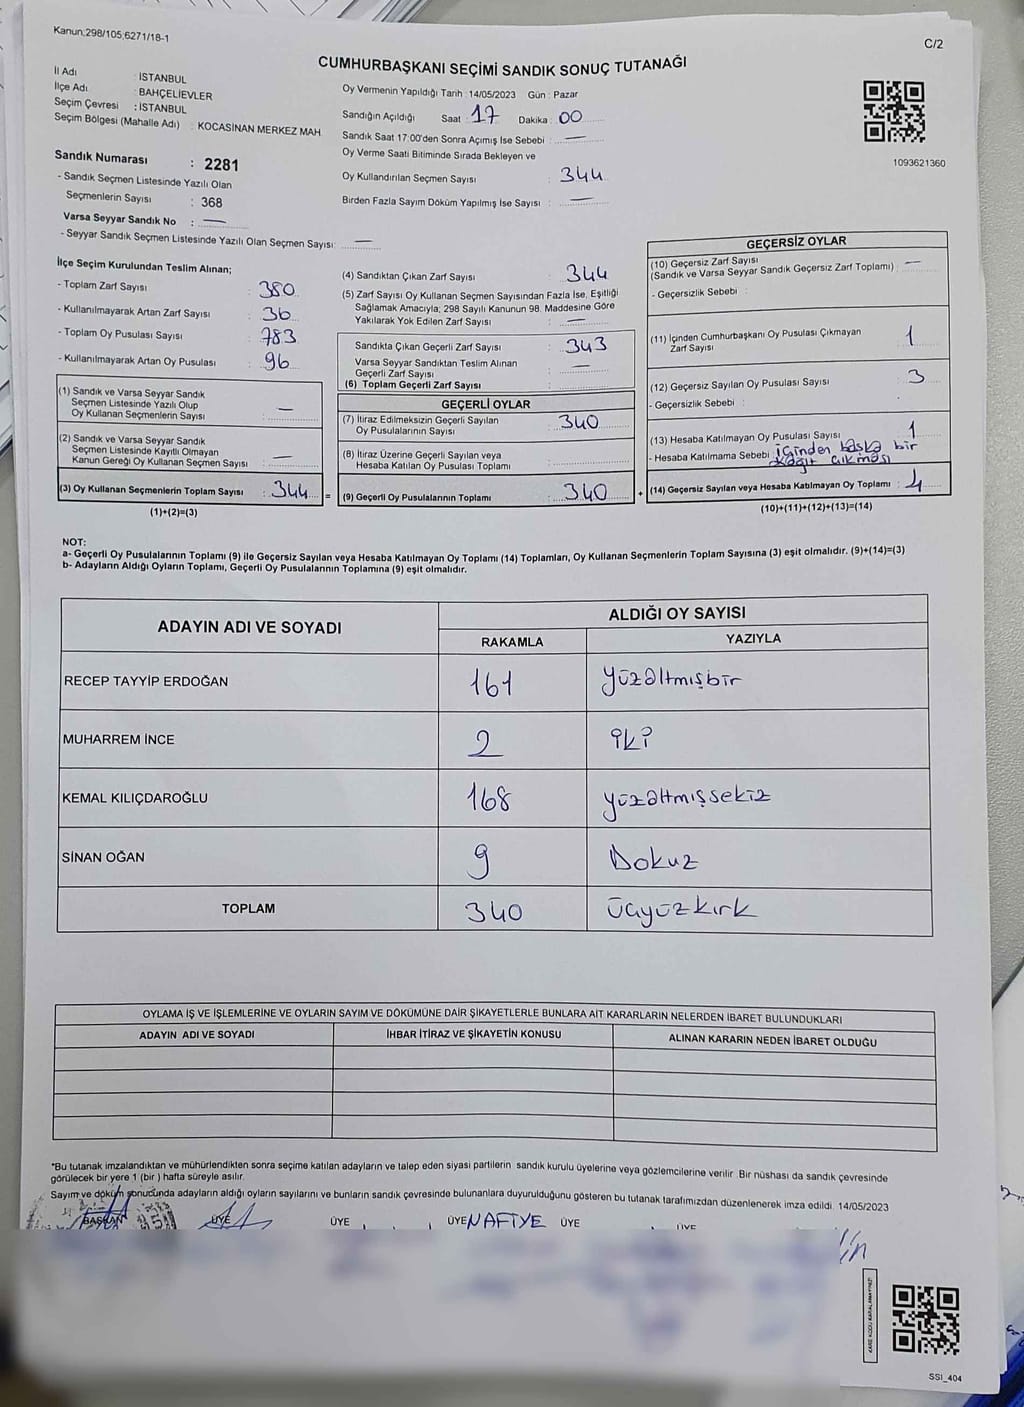 Kanun:298/105,6271/18-1
C/2
CUMHURBAŞKANI SEÇİMİ SANDIK SONUÇ TUTANAĞI
İl Adı : İSTANBUL
İlçe Adı : BAHÇELİEVLER
Seçim Çevresi : İSTANBUL
Seçim Bölgesi (Mahalle Adı) : KOCASİNAN MERKEZ MAH.
Sandık Numarası : 2281
- Sandık Seçmen Listesinde Yazılı Olan
Seçmenlerin Sayısı : 368
Varsa Seyyar Sandık No : —
- Seyyar Sandık Seçmen Listesinde Yazılı Olan Seçmen Sayısı: —
Oy Vermenin Yapıldığı Tarih : 14/05/2023 Gün : Pazar
Sandığın Açıldığı Saat : 17 Dakika : 00
Sandık Saat 17:00'den Sonra Açılmış İse Sebebi : —
Oy Verme Saati Bitiminde Sırada Bekleyen ve
Oy Kullandırılan Seçmen Sayısı : 344
Birden Fazla Sayım Döküm Yapılmış İse Sayısı : —
1093621360
İlçe Seçim Kurulundan Teslim Alınan;
- Toplam Zarf Sayısı : 380
- Kullanılmayarak Artan Zarf Sayısı : 36
- Toplam Oy Pusulası Sayısı : 783
- Kullanılmayarak Artan Oy Pusulası : 96
(1) Sandık ve Varsa Seyyar Sandık
Seçmen Listesinde Yazılı Olup
Oy Kullanan Seçmenlerin Sayısı : —
(2) Sandık ve Varsa Seyyar Sandık
Seçmen Listesinde Kayıtlı Olmayan
Kanun Gereği Oy Kullanan Seçmen Sayısı : —
(3) Oy Kullanan Seçmenlerin Toplam Sayısı : 344 =
(1)+(2)=(3)
(4) Sandıktan Çıkan Zarf Sayısı : 344
(5) Zarf Sayısı Oy Kullanan Seçmen Sayısından Fazla İse, Eşitliği
Sağlamak Amacıyla; 298 Sayılı Kanunun 98. Maddesine Göre
Yakılarak Yok Edilen Zarf Sayısı : —
Sandıkta Çıkan Geçerli Zarf Sayısı : 343
Varsa Seyyar Sandıktan Teslim Alınan
Geçerli Zarf Sayısı : —
(6) Toplam Geçerli Zarf Sayısı
GEÇERLİ OYLAR
(7) İtiraz Edilmeksizin Geçerli Sayılan
Oy Pusulalarının Sayısı : 340
(8) İtiraz Üzerine Geçerli Sayılan veya
Hesaba Katılan Oy Pusulası Toplamı :
(9) Geçerli Oy Pusulalarının Toplamı : 340 +
GEÇERSİZ OYLAR
(10) Geçersiz Zarf Sayısı : —
(Sandık ve Varsa Seyyar Sandık Geçersiz Zarf Toplamı)
- Geçersizlik Sebebi :
(11) İçinden Cumhurbaşkanı Oy Pusulası Çıkmayan
Zarf Sayısı : 1
(12) Geçersiz Sayılan Oy Pusulası Sayısı : 3
- Geçersizlik Sebebi :
(13) Hesaba Katılmayan Oy Pusulası Sayısı : 1
- Hesaba Katılmama Sebebi : içinden başka bir
kağıt çıkması
(14) Geçersiz Sayılan veya Hesaba Katılmayan Oy Toplamı : 4
(10)+(11)+(12)+(13)=(14)
NOT:
a- Geçerli Oy Pusulalarının Toplamı (9) ile Geçersiz Sayılan veya Hesaba Katılmayan Oy Toplamı (14) Toplamları, Oy Kullanan Seçmenlerin Toplam Sayısına (3) eşit olmalıdır. (9)+(14)=(3)
b- Adayların Aldığı Oyların Toplamı, Geçerli Oy Pusulalarının Toplamına (9) eşit olmalıdır.
ADAYIN ADI VE SOYADI ALDIĞI OY SAYISI
RAKAMLA YAZIYLA
RECEP TAYYİP ERDOĞAN 161 yüzaltmışbir
MUHARREM İNCE 2 iki
KEMAL KILIÇDAROĞLU 168 yüzaltmışsekiz
SİNAN OĞAN 9 Dokuz
TOPLAM 340 üçyüzkırk
OYLAMA İŞ VE İŞLEMLERİNE VE OYLARIN SAYIM VE DÖKÜMÜNE DAİR ŞİKAYETLERLE BUNLARA AİT KARARLARIN NELERDEN İBARET BULUNDUKLARI
ADAYIN ADI VE SOYADI İHBAR İTİRAZ VE ŞİKAYETİN KONUSU ALINAN KARARIN NEDEN İBARET OLDUĞU
*Bu tutanak imzalandıktan ve mühürlendikten sonra seçime katılan adayların ve talep eden siyasi partilerin sandık kurulu üyelerine veya gözlemcilerine verilir. Bir nüshası da sandık çevresinde
görülecek bir yere 1 (bir) hafta süreyle asılır.
Sayım ve döküm sonucunda adayların aldığı oyların sayılarını ve bunların sandık çevresinde bulunanlara duyurulduğunu gösteren bu tutanak tarafımızdan düzenlenerek imza edildi. 14/05/2023
BAŞKAN ÜYE ÜYE ÜYE NAFİYE ÜYE ÜYE
SSI_404